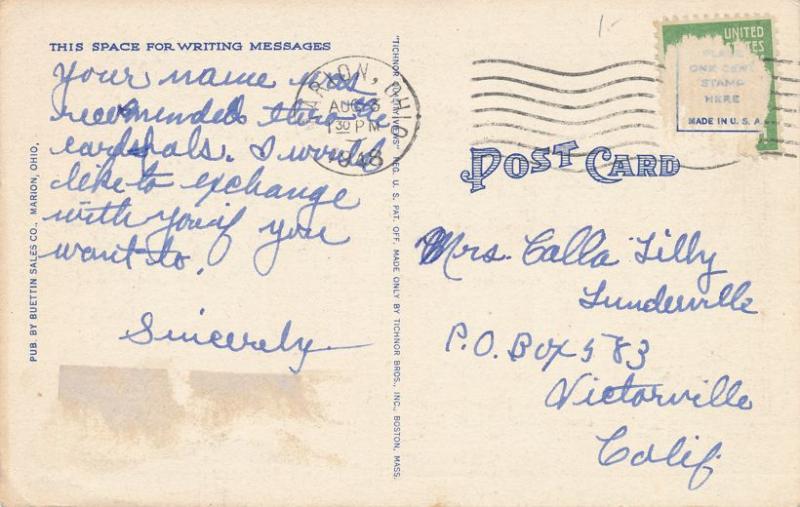 THIS SPACE FOR WRITING MESSAGES
Your name was
recommended thro the
card pals. I would
like to exchange
with you if you
want to.
Sincerely
PUB. BY BUETTIN SALES CO., MARION, OHIO.
"TICHNOR QUALITY VIEWS" REG. U. S. PAT. OFF. MADE ONLY BY TICHNOR BROS., INC., BOSTON, MASS.
MARION, OHIO
AUG 3
1 30 PM
1948
UNITED
STATES
PLACE
ONE CENT
STAMP
HERE
MADE IN U. S. A.
POST CARD
Mrs. Calla Lilly
Lunderville
P.O. Box 583
Victorville
Calif.